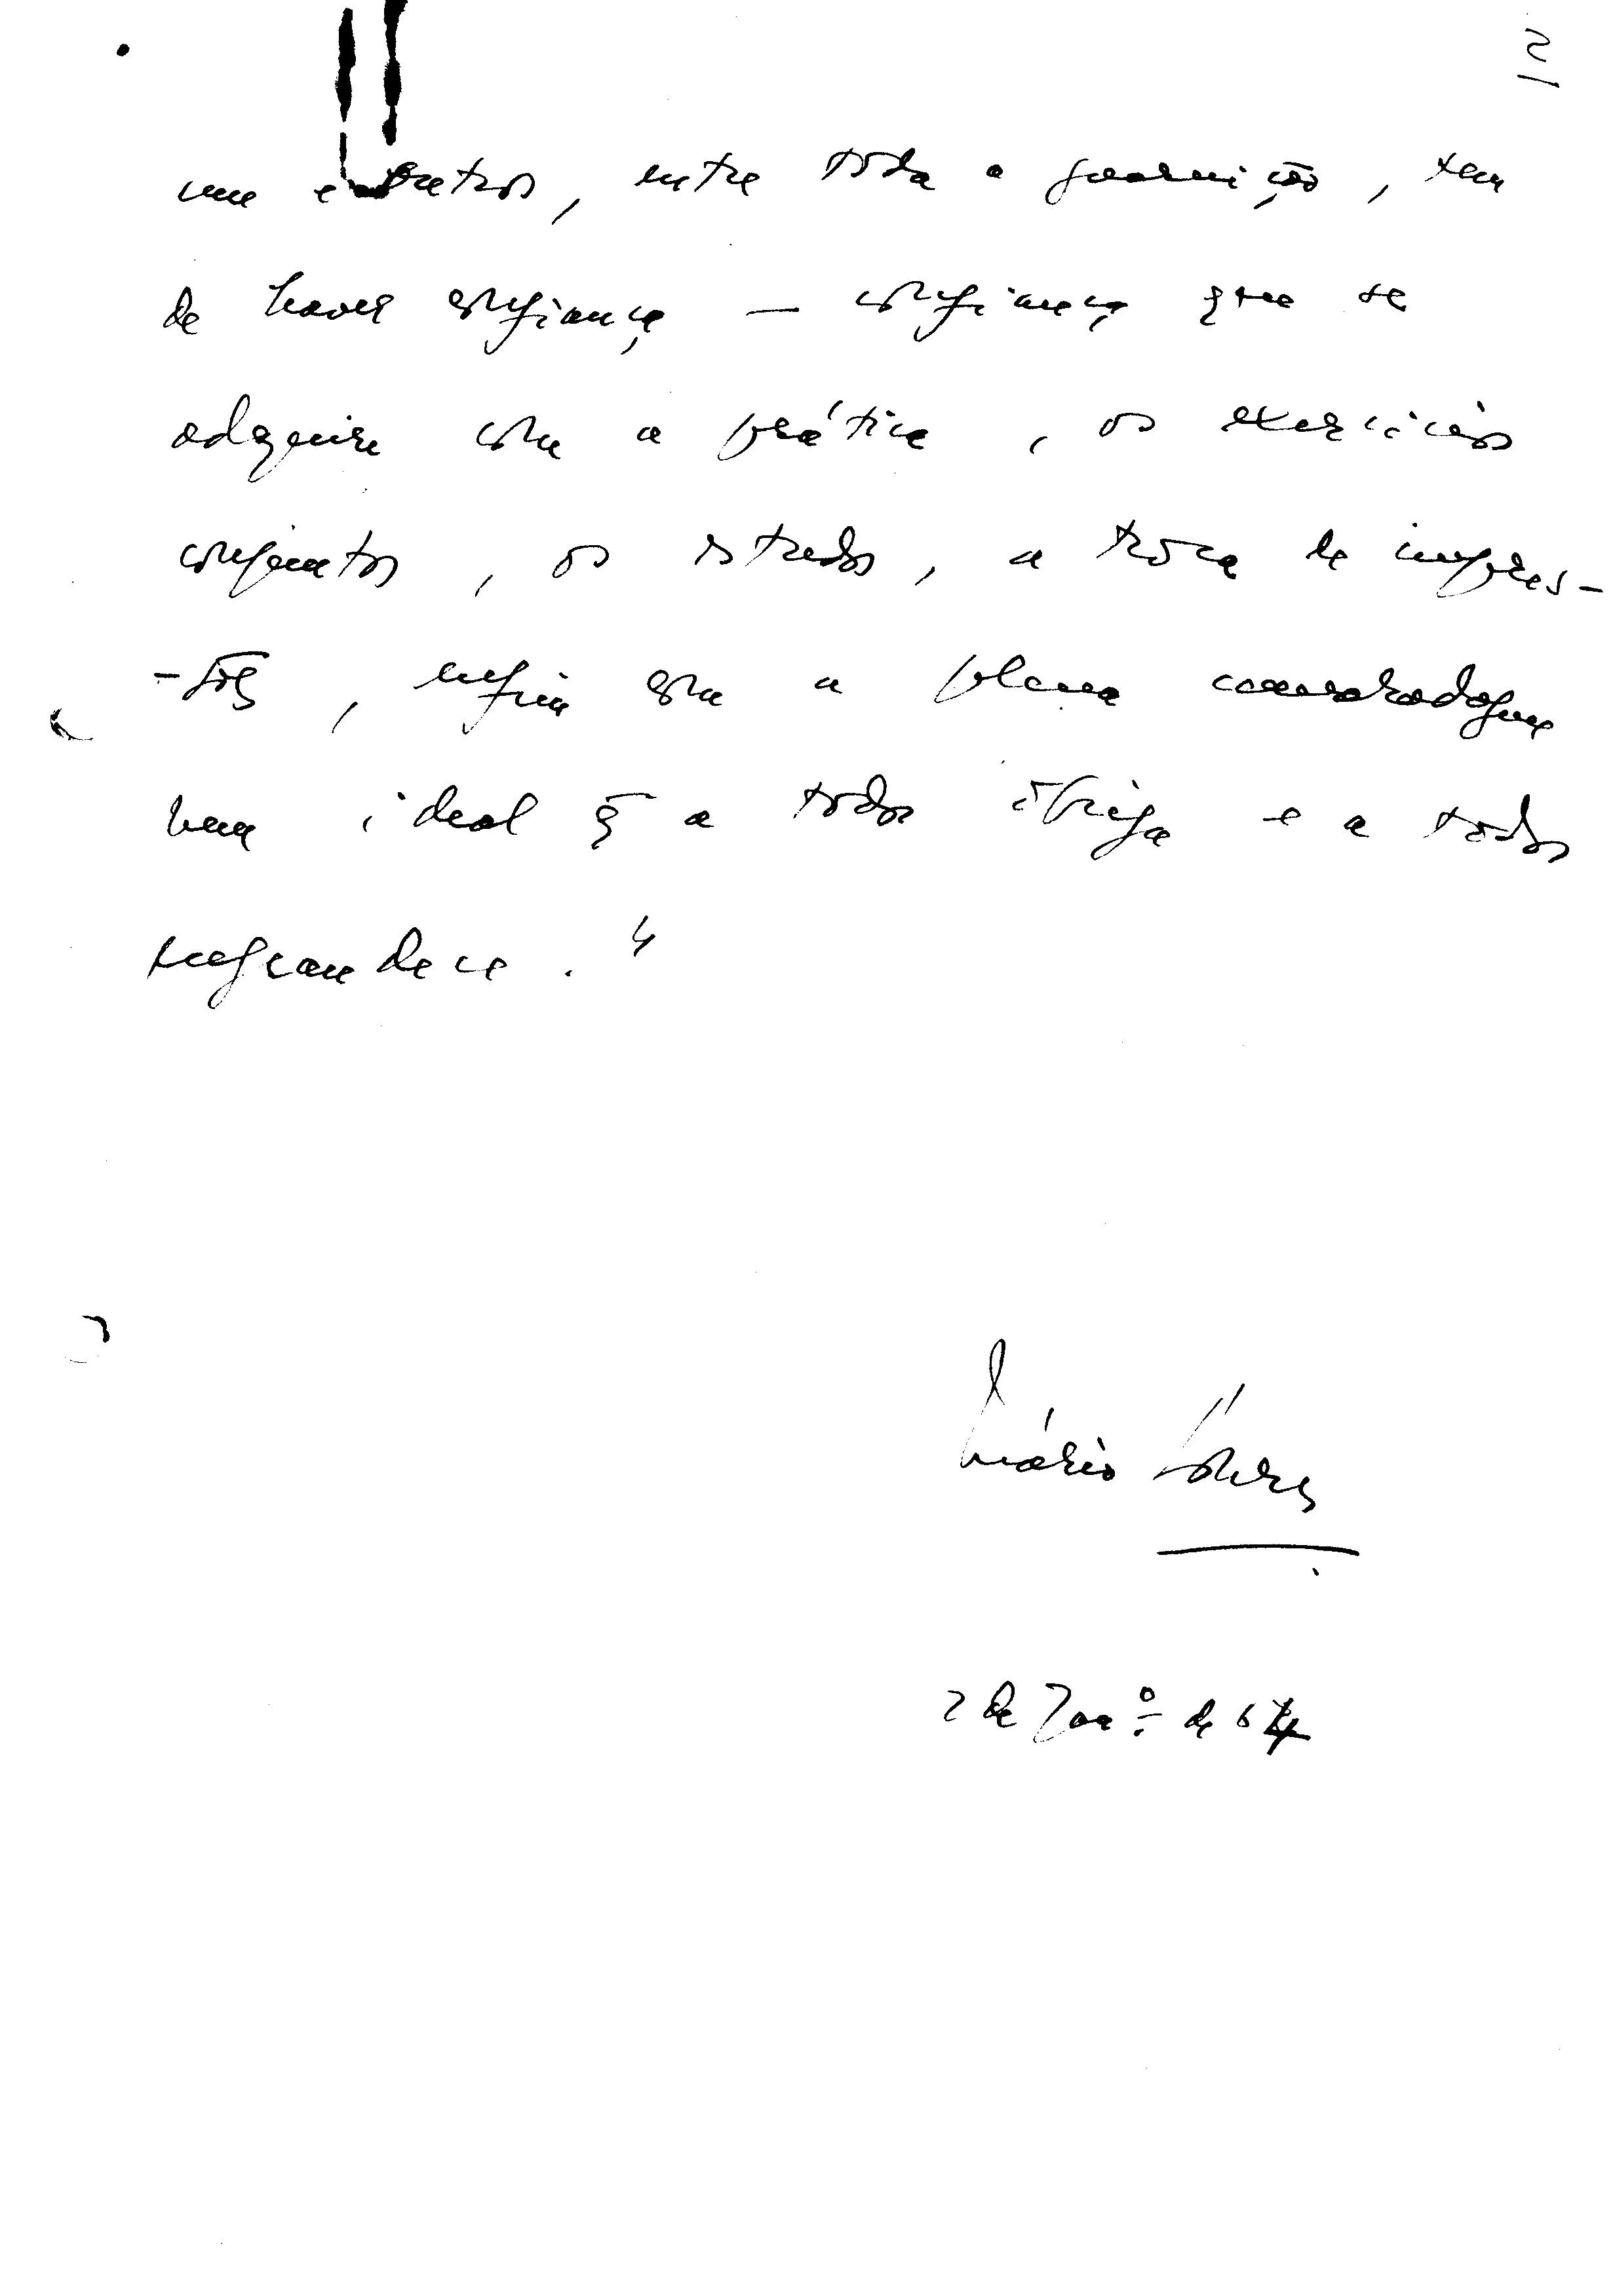 2
uns e outros, entre toda a guarnição, tem
de haver confiança — confiança que se
adquire com a prática, os exercícios
conjuntos, os estudos, a troca de impres-
-sões, enfim com a plena camaradagem
num ideal q̃ a todos obriga e a todos
engrandece."
Mário
2 de Jan.º de 64